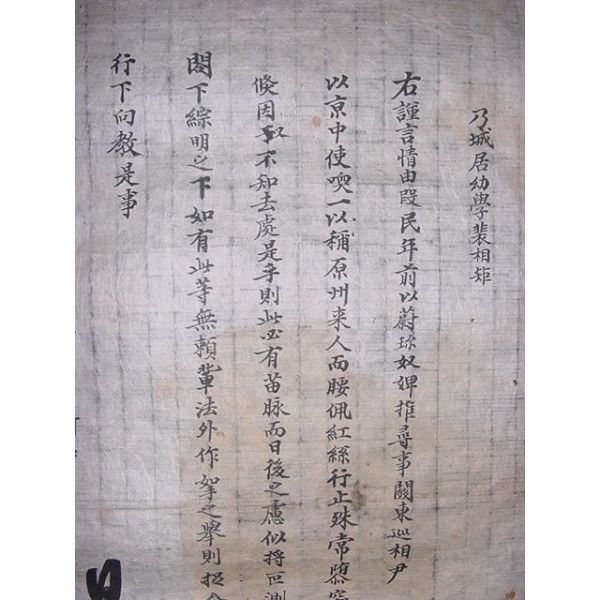 乃城居幼學裴相矩
右謹言情由段民年前以蔚珍奴婢推尋事關東巡相尹
以京中使喚一以稱原州来人而腰佩紅絲行止殊常
倏因不知去處是乎則此必有苗脉而日後之慮似將叵測
閤下綜明之下如有此等無頼軰法外作拏之擧則捉
行下向教是事